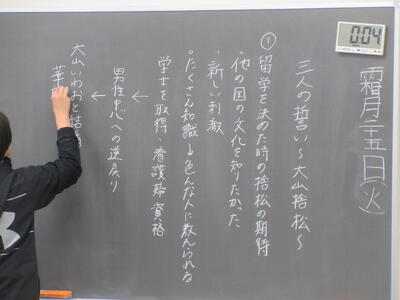 霜月二五日(火)
三人の誓い〜大山捨松〜
①留学を決めた時の捨松の期待
・他の国の文化を知りたかった
・新しい刺激
・たくさん知識→色んな人に教えられる
学士を取得・看護婦資格
↓
男性中心への逆戻り
↓
大山いわおと結婚
華
0:04